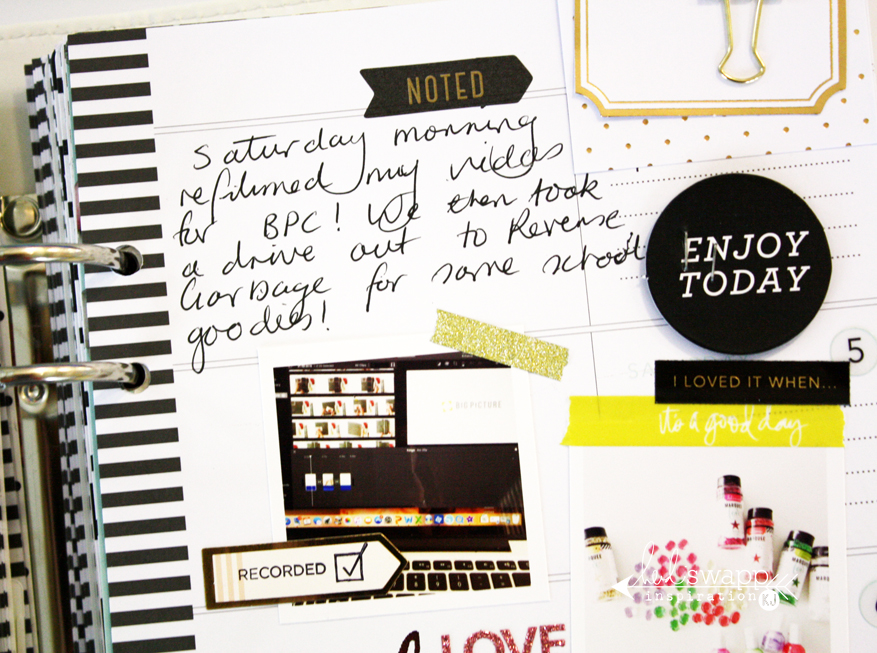 NOTED
Saturday morning
refilmed my videos
for BPC! We then took
a drive out to Reverse
Garbage for some school
goodies!
ENJOY
TODAY
5
I LOVED IT WHEN...
it's a good day
BIG PICTURE
RECORDED
heidi swapp
inspiration
LOVE